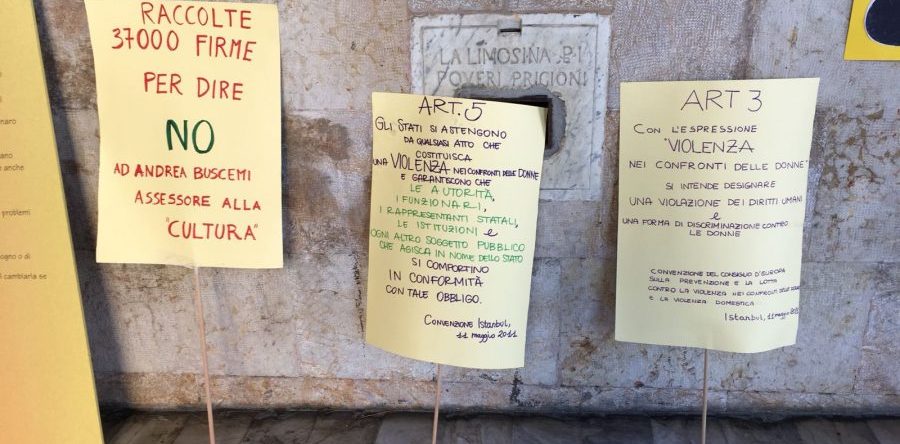 maro
ano
e anche
problemi
ogno o di
cambiarla se
RACCOLTE
37000 FIRME
PER DIRE
NO
AD ANDREA BUSCEMI
ASSESSORE ALLA
"CULTURA"
LA LIMOSINA PE I
POVERI PRIGIONI
ART. 5
GLI STATI SI ASTENGONO
DA QUALSIASI ATTO CHE
COSTITUISCA
UNA VIOLENZA NEI CONFRONTI DELLE DONNE
E GARANTISCONO CHE
LE AUTORITÀ,
I FUNZIONARI,
I RAPPRESENTANTI STATALI,
LE ISTITUZIONI e
OGNI ALTRO SOGGETTO PUBBLICO
CHE AGISCA IN NOME DELLO STATO
SI COMPORTINO
IN CONFORMITÀ
CON TALE OBBLIGO.
CONVENZIONE ISTANBUL,
11 maggio 2011
ART 3
CON L'ESPRESSIONE
"VIOLENZA
NEI CONFRONTI DELLE DONNE"
SI INTENDE DESIGNARE
UNA VIOLAZIONE DEI DIRITTI UMANI
e
UNA FORMA DI DISCRIMINAZIONE CONTRO
LE DONNE
CONVENZIONE DEL CONSIGLIO D'EUROPA
SULLA PREVENZIONE E LA LOTTA
CONTRO LA VIOLENZA NEI CONFRONTI DELLE DONNE
E LA VIOLENZA DOMESTICA
Istanbul, 11 maggio 2011